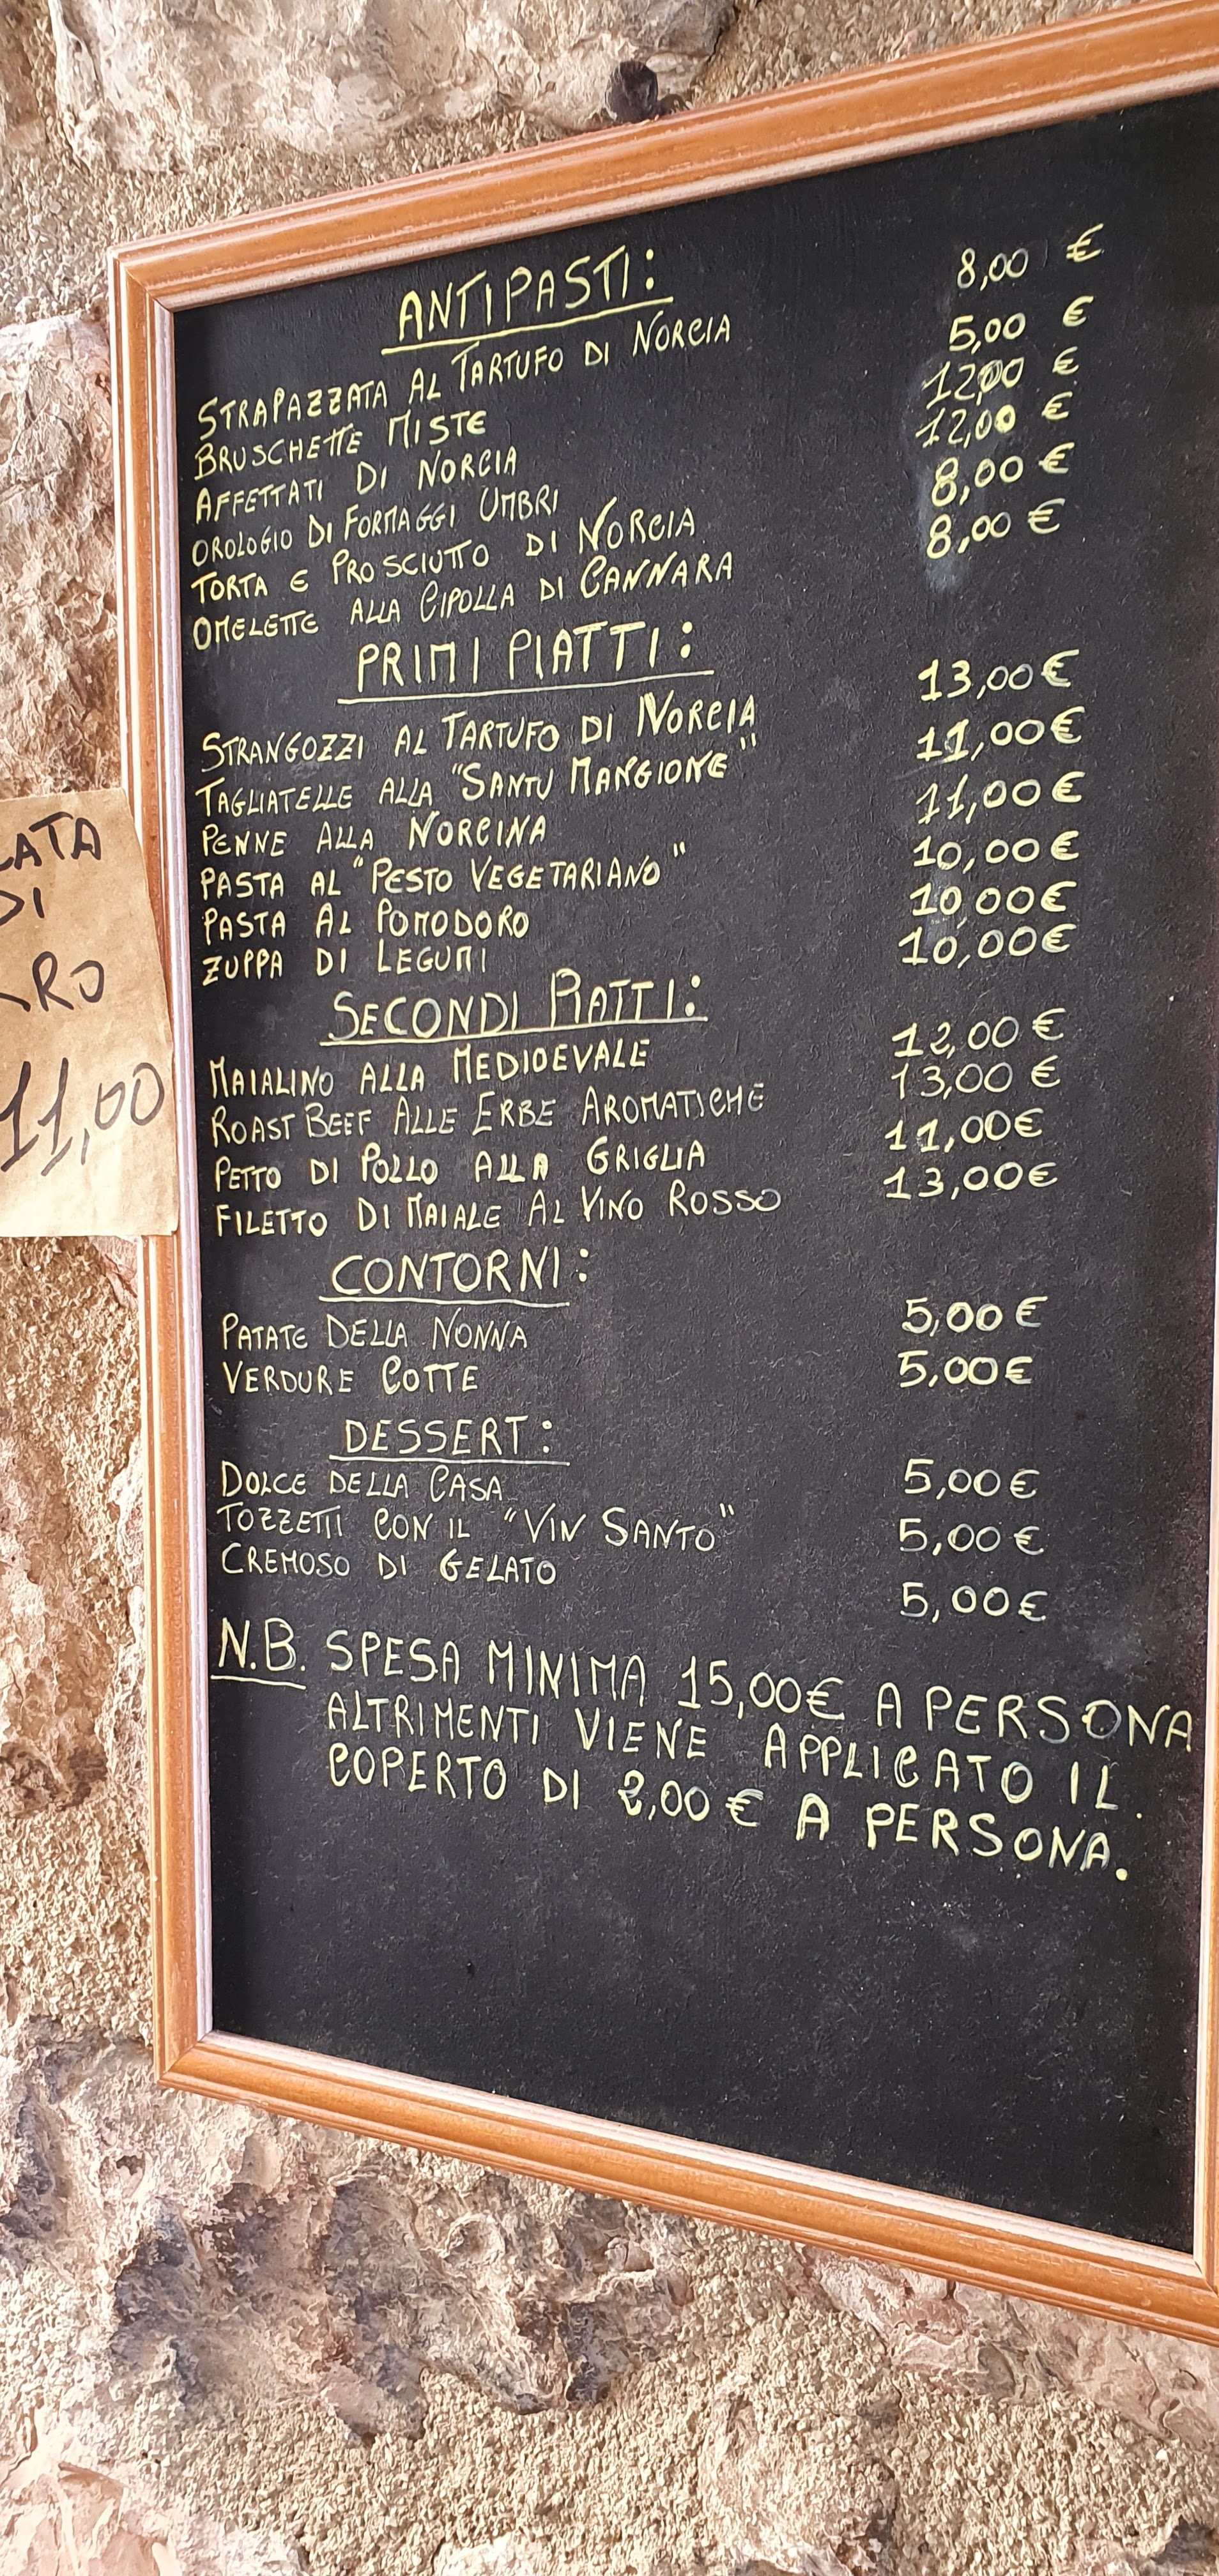 ANTIPASTI:
STRAPAZZATA AL TARTUFO DI NORCIA 8,00 €
BRUSCHETTE MISTE 5,00 €
AFFETTATI DI NORCIA 12,00 €
OROLOGIO DI FORMAGGI UMBRI 12,00 €
TORTA E PROSCIUTTO DI NORCIA 8,00 €
OMELETTE ALLA CIPOLLA DI CANNARA 8,00 €
PRIMI PIATTI:
STRANGOZZI AL TARTUFO DI NORCIA 13,00 €
TAGLIATELLE ALLA "SANTU MANGIONE" 11,00 €
PENNE ALLA NORCINA 11,00 €
PASTA AL "PESTO VEGETARIANO" 10,00 €
PASTA AL POMODORO 10,00 €
ZUPPA DI LEGUMI 10,00 €
SECONDI PIATTI:
MAIALINO ALLA MEDIOEVALE 12,00 €
ROAST BEEF ALLE ERBE AROMATICHE 13,00 €
PETTO DI POLLO ALLA GRIGLIA 11,00 €
FILETTO DI MAIALE AL VINO ROSSO 13,00 €
CONTORNI:
PATATE DELLA NONNA 5,00 €
VERDURE COTTE 5,00 €
DESSERT:
DOLCE DELLA CASA 5,00 €
TOZZETTI CON IL "VIN SANTO" 5,00 €
CREMOSO DI GELATO 5,00 €
N.B. SPESA MINIMA 15,00€ A PERSONA
ALTRIMENTI VIENE APPLICATO IL
COPERTO DI 2,00 € A PERSONA.
DI
11,00